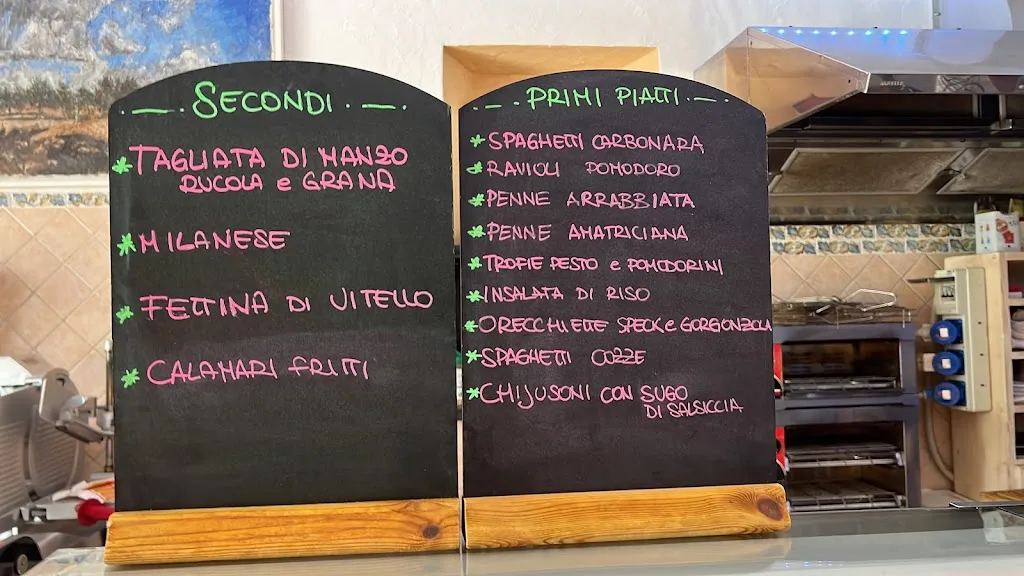 SECONDI
TAGLIATA DI MANZO
RUCOLA e GRANA
MILANESE
FETTINA DI VITELLO
CALAMARI FRITTI
PRIMI PIATTI
SPAGHETTI CARBONARA
RAVIOLI POMODORO
PENNE ARRABBIATA
PENNE AMATRICIANA
TROFIE PESTO e POMODORINI
INSALATA DI RISO
ORECCHIETTE SPECK e GORGONZOLA
SPAGHETTI COZZE
CHIJUSONI CON SUGO
DI SALSICCIA